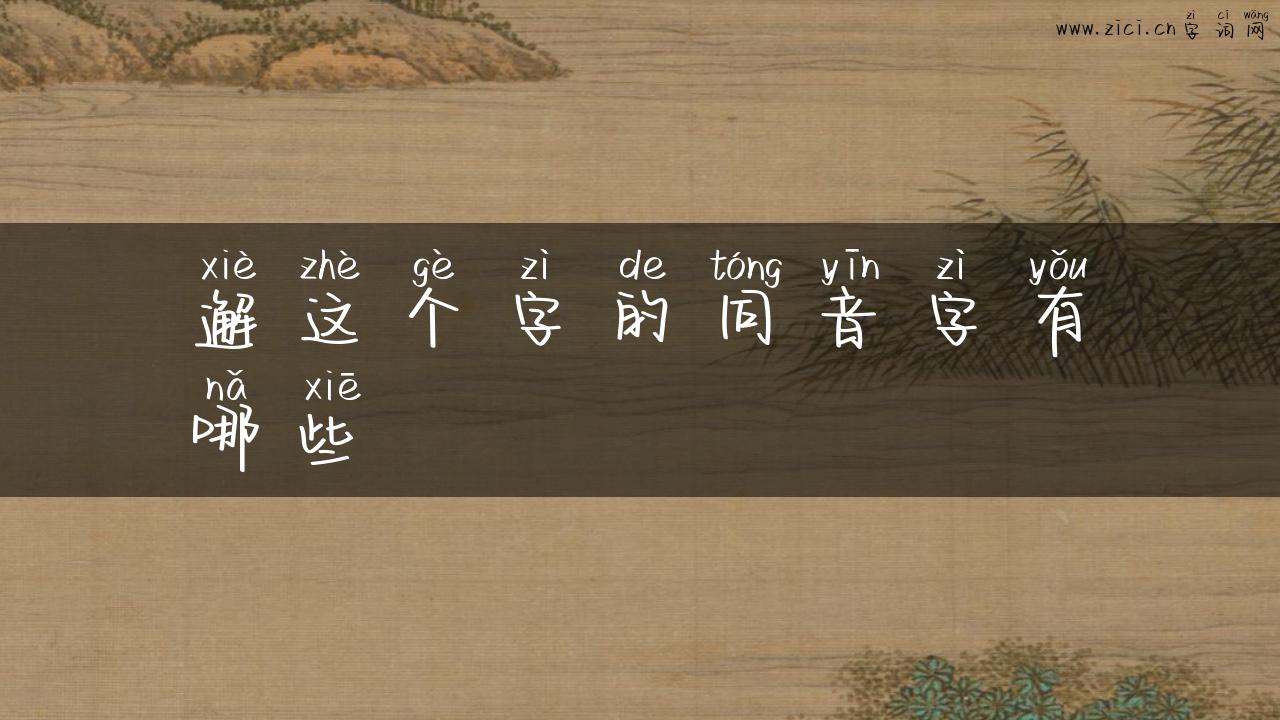 zì cí wǎng
www.zici.cn字词网
xiè zhè gè zì de tóng yīn zì yǒu
邂这个字的同音字有
nǎ xiē
哪些